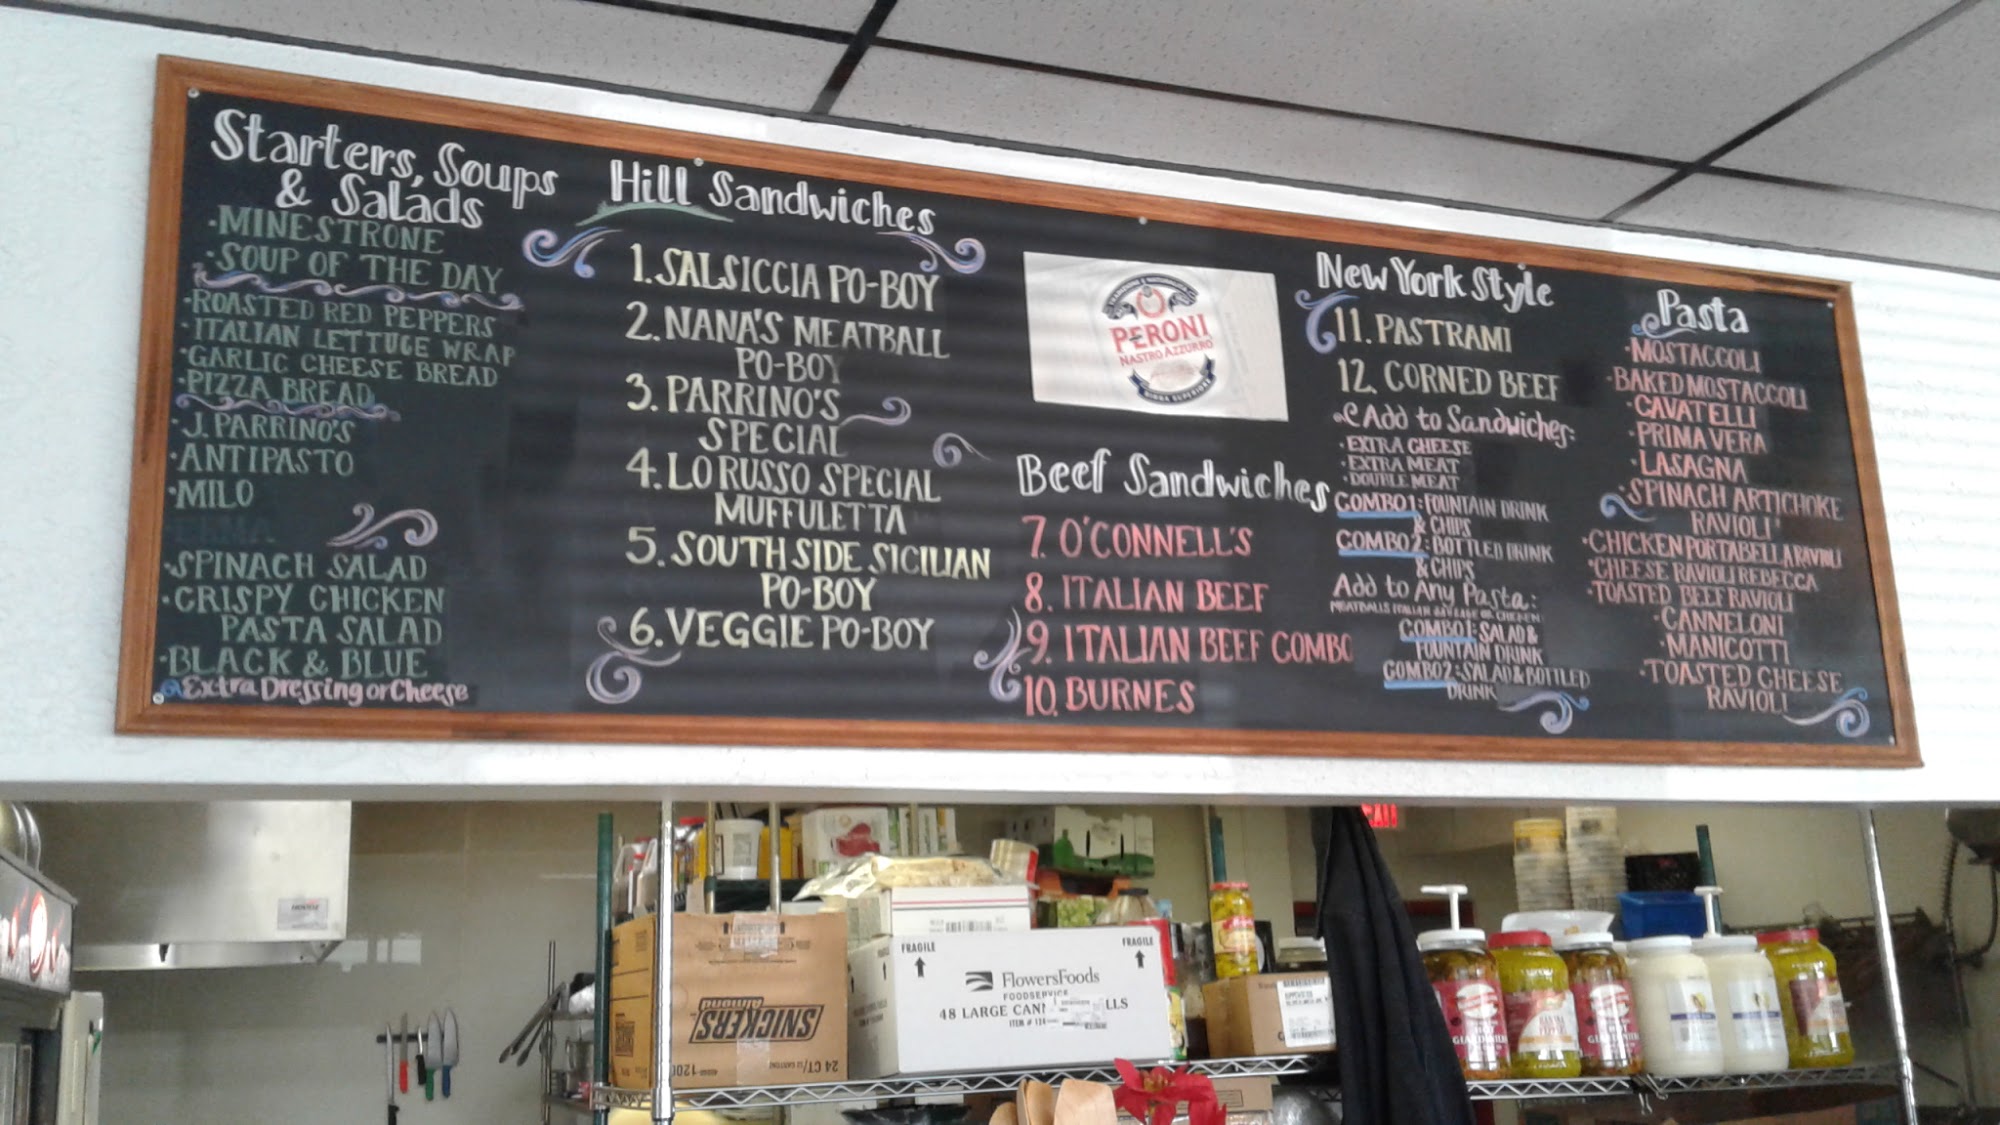 Starters, Soups
& Salads
·MINESTRONE
·SOUP OF THE DAY
·ROASTED RED PEPPERS
·ITALIAN LETTUCE WRAP
·GARLIC CHEESE BREAD
·PIZZA BREAD
·J. PARRINO'S
·ANTIPASTO
·MILO
·SPINACH SALAD
·CRISPY CHICKEN
PASTA SALAD
·BLACK & BLUE
Extra Dressing or Cheese
Hill Sandwiches
1. SALSICCIA PO-BOY
2. NANA'S MEATBALL
PO-BOY
3. PARRINO'S
SPECIAL
4. LO RUSSO SPECIAL
MUFFULETTA
5. SOUTH SIDE SICILIAN
PO-BOY
6. VEGGIE PO-BOY
PERONI
NASTRO AZZURRO
BIRRA SUPERIORE
Beef Sandwiches
7. O'CONNELL'S
8. ITALIAN BEEF
9. ITALIAN BEEF COMBO
10. BURNES
New York Style
11. PASTRAMI
12. CORNED BEEF
Add to Sandwiches:
·EXTRA CHEESE
·EXTRA MEAT
·DOUBLE MEAT
COMBO1: FOUNTAIN DRINK
& CHIPS
COMBO2: BOTTLED DRINK
& CHIPS
Add to Any Pasta:
MEATBALLS ITALIAN SAUSAGE OR CHICKEN
COMBO1: SALAD &
FOUNTAIN DRINK
COMBO2: SALAD & BOTTLED
DRINK
Pasta
·MOSTACCOLI
·BAKED MOSTACCOLI
·CAVATELLI
·PRIMAVERA
·LASAGNA
·SPINACH ARTICHOKE
RAVIOLI
·CHICKEN PORTABELLA RAVIOLI
·CHEESE RAVIOLI REBECCA
·TOASTED BEEF RAVIOLI
·CANNELONI
·MANICOTTI
·TOASTED CHEESE
RAVIOLI
EXIT
SNICKERS
Almond
24 CT/12
FRAGILE
FRAGILE
FlowersFoods
FOODSERVICE
48 LARGE
ITEM #